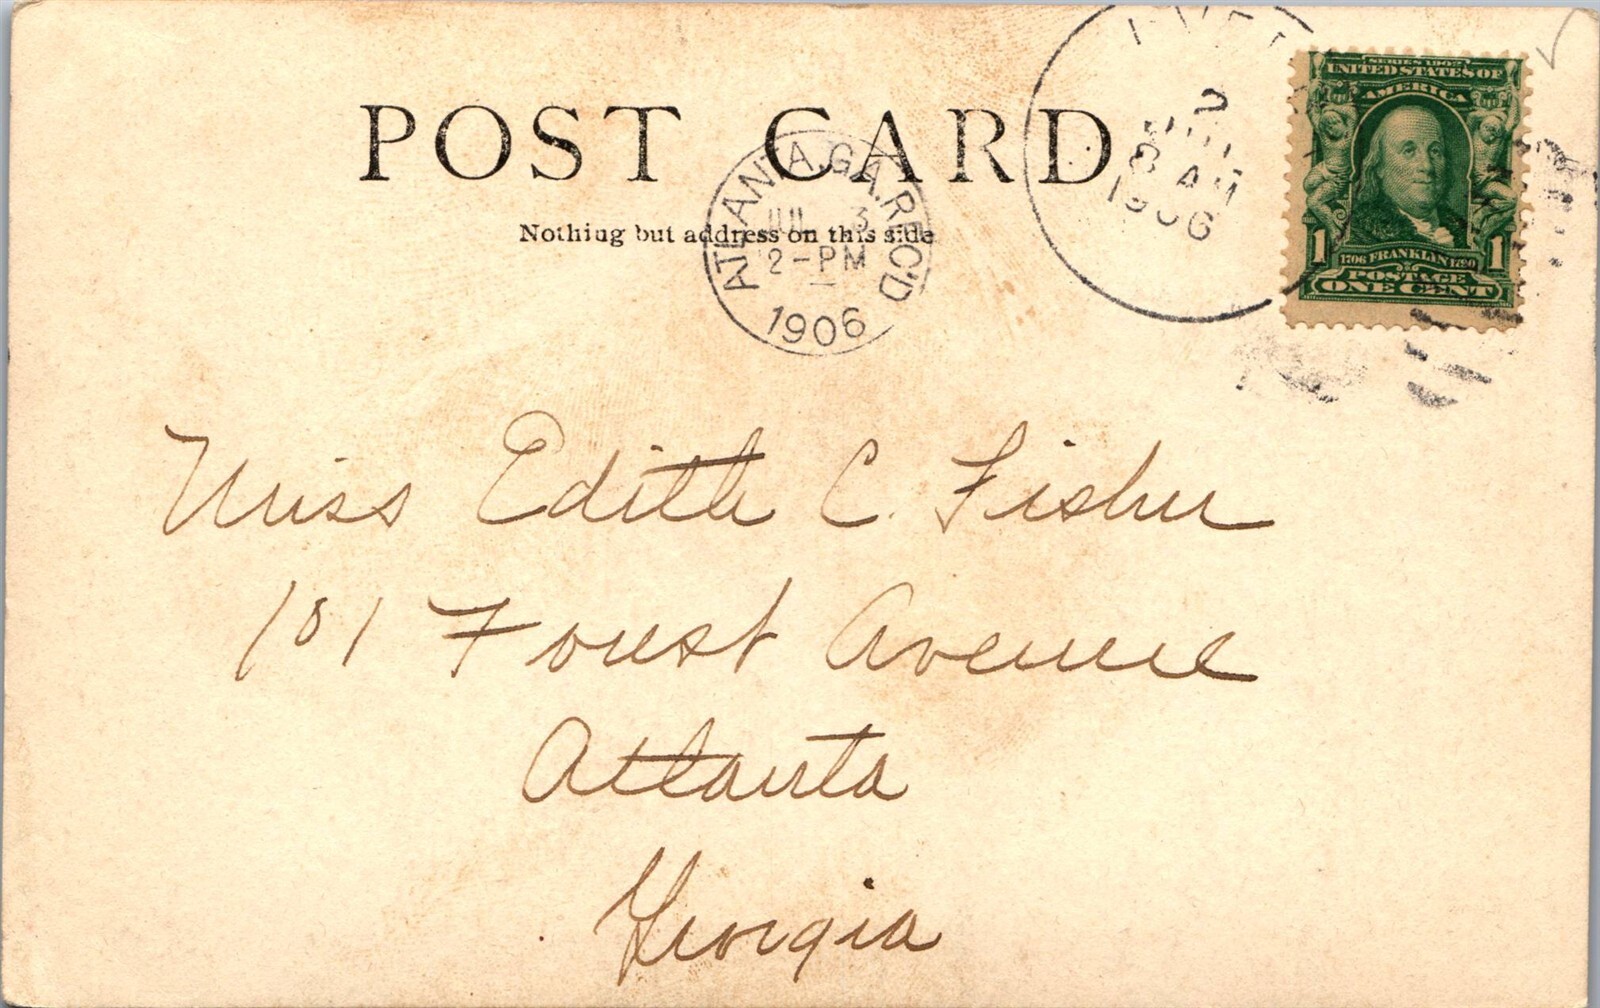 POST CARD
Nothing but address on this side
ATLANTA, GA. REC'D
JUL 3
2-PM
1906
2
JUL
8 AM
1906
SERIES 1902
UNITED STATES OF
AMERICA
1 1
1706 FRANKLIN 1790
POSTAGE
ONE CENT
Miss Edith C. Fisher
101 Forest Avenue
Atlanta
Georgia